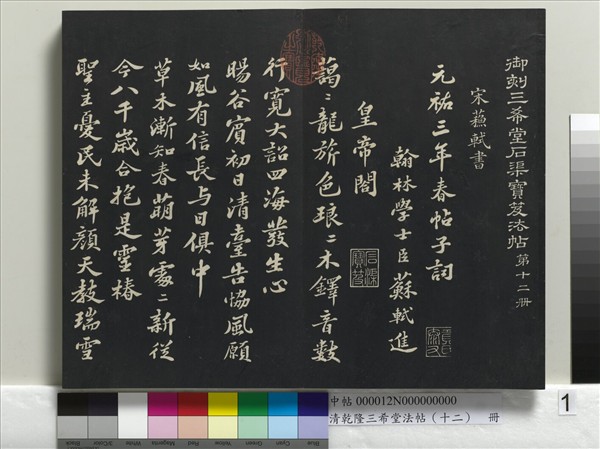 御刻三希堂石渠寶笈法帖 第十二册
宋蘇軾書
元祐三年春帖子詞
翰林學士臣蘇軾進
皇帝閣
石渠寶笈
藹〻龍旂色琅〻木鐸音數
行寬大詔四海發生心
暘谷賓初日清臺告協風願
如風有信長与日俱中
草木漸知春萌芽處〻新從
今八千歲合抱是靈椿
聖主憂民未解顏天教瑞雪
中帖 000012N000000000
清乾隆三希堂法帖（十二） 冊
1
Black 3/Color White Magenta Red Yellow Green Cyan Blue